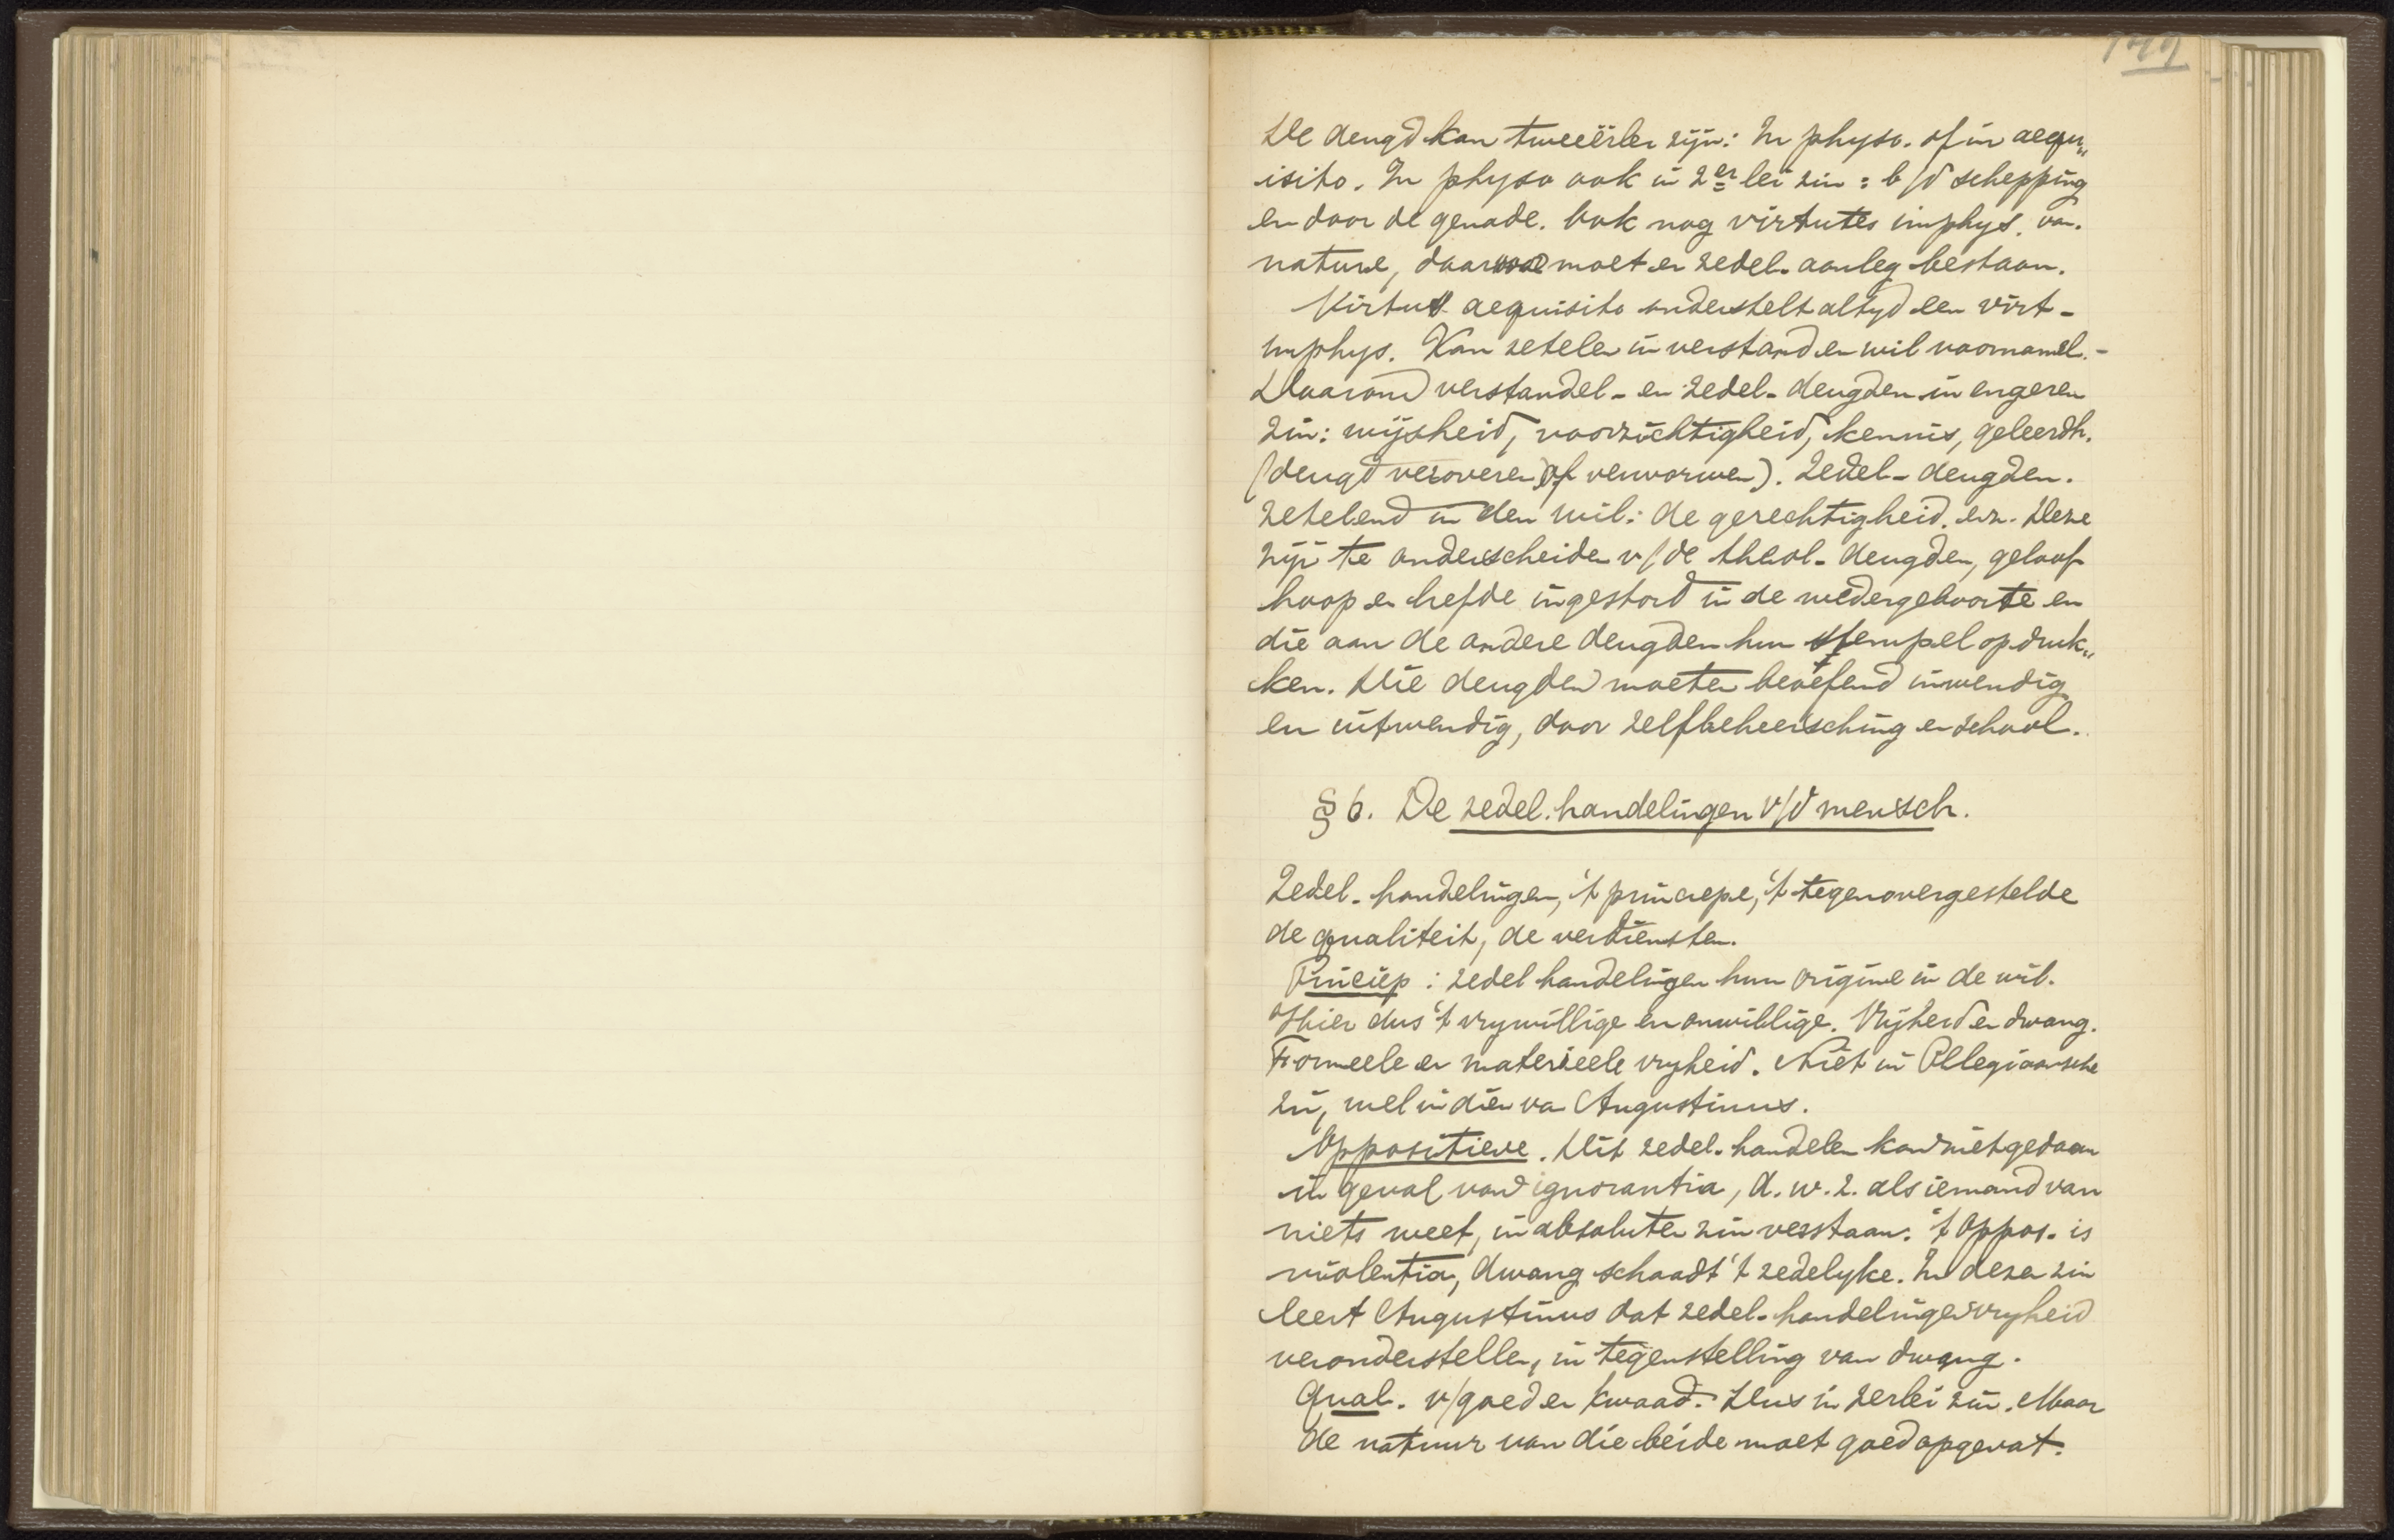 149
De deugd kan tweeërlei zijn: In physo. of in aequ„
isito. In physo ook in 2er lei zin: b/d schepping
en door de genade. Ook nog virtutes imphys. van
nature, daarvoor moet er zedel. aanleg bestaan.
Virtus aequisito onderstelt altyd een virt-
imphys. Kan zetelen in verstand en wil voornamel.-
Daarom verstandel- en zedel- deugden in engeren
zin: wijsheid, voorzichtigheid, kennis, geleerdh.
(deugd veroveren of verworven). Zedel- deugden.
zetelend in den wil: de gerechtigheid. enz. Deze
zijn te onderscheiden v/de theol- deugden, geloof
hoop en liefde ingestord in de wedergeboorte en
die aan de andere deugden hun stempel opdruk„
ken. Die deugden moeten beoefend inwendig
en uitwendig, door zelfbeheersching en school.
§ 6. De zedel. handelingen v/d mensch.
Zedel- handelingen, 't principe, 't tegenovergestelde
de qualiteit, de verdiensten.
Princiep: zedel handelingen hun origine in de wil.
Hier dus 't vrywillige en onwillige. Vrijheid en dwang.
Formeele en materieele vryheid. Niet in Pellegiaansche
zin, wel in dien van Augustinus.
Oppositieve. Dit zedel. handelen kan niet gedaan
in geval van ignorantia, d.w.z. als iemand van
niets weet, in absoluten zin verstaan. 't Oppos. is
violentia, dwang schaadt 't zedelyke. In dezen zin
leert Augustinus dat zedel- handelingen vryheid
veronderstellen, in tegenstelling van dwang.
Qual. v/goed en kwaad. Dus in 2erlei zin. Maar
de natuur van die beide moet goed opgevat.